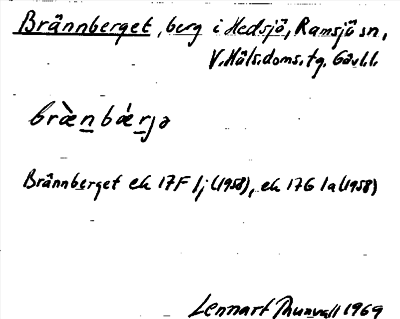 Brännberget, berg i Hedsjö, Ramsjö sn,
V. Häls. doms. tg. Gävl. l.
bræ̀nbǽrjə
Brännberget ek 17F 1j (1958), ek 17G 1a (1958)
Lennart Thunvall 1969